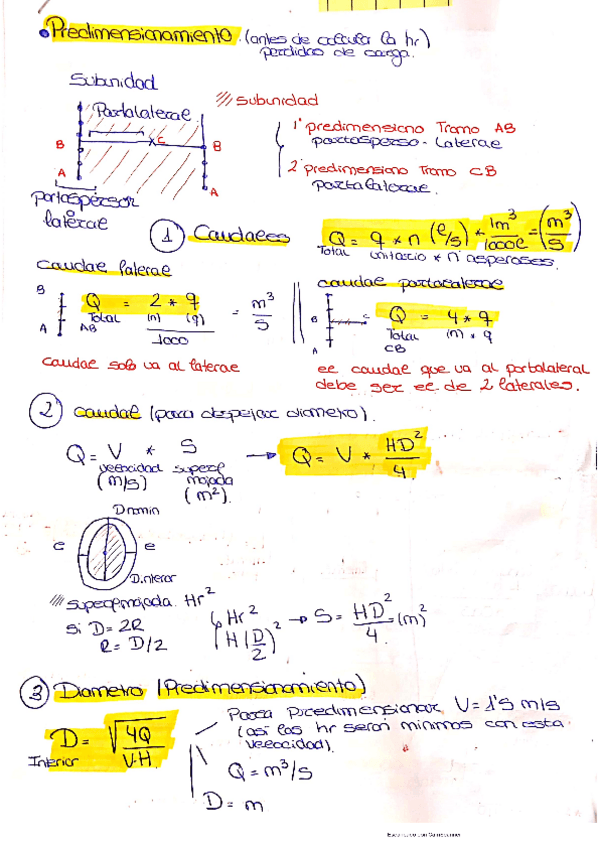 • Predimensionamiento (antes de calcular la hr)
perdidas de carga.
Subunidad
Portalateral
/// Subunidad
B C B
A A
1° predimensiono Tramo AB
portaspersor - Laterae
2 predimensiono Tramo CB
Portalaterae.
portaspersor
laterae
1 Caudales
Q = q * n (l/s) * 1m³/1000l = (m³/s)
Total unitario * nº aspersores.
caudae laterae
caudae portalaterae
B
A
Q = 2 * q / 1000 = m³/s
Total AB (n) (q)
B C
A
Q = 4 * q
Total CB (n) * q
caudae solo va al laterae
ee caudae que va al portalateral
debe ser ee de 2 laterales.
2 caudal (para despejar diametro).
Q = V * S → Q = V * ΠD²/4
velocidad (m/s) superf mojada (m²).
D nomin
e e
D. interior
/// superf mojada. Πr²
si D = 2R
R = D/2
Πr²
Π(D/2)² → S = ΠD²/4 (m)²
3 Diametro (Predimensionamiento)
D = √4Q/V·Π
Interior
Para predimensionar V = 1'5 m/s
(así las hr seran minimas con esta
velocidad).
Q = m³/s
D = m
Escaneado con CamScanner